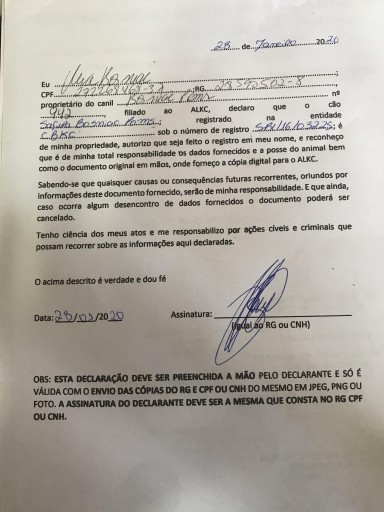 28 de Janeiro 2020
Eu
CPF ;RG
proprietário do canil nº
942, filiado ao ALKC, declaro que o cão
Safira registrado na entidade
CBKC sob o número de registro ; é
de minha propriedade, autorizo que seja feito o registro em meu nome, e reconheço
que é de minha total responsabilidade os dados fornecidos e a posse do animal bem
como o documento original em mãos, onde forneço a cópia digital para o ALKC.
Sabendo-se que quaisquer causas ou consequências futuras recorrentes, oriundos por
informações deste documento fornecido, serão de minha responsabilidade. E que ainda,
caso ocorra algum desencontro de dados fornecidos o documento poderá ser
cancelado.
Tenho ciência dos meus atos e me responsabilizo por ações cíveis e criminais que
possam recorrer sobre as informações aqui declaradas.
O acima descrito é verdade e dou fé
Data: 28/01/2020 Assinatura:
(Igual ao RG ou CNH)
OBS: ESTA DECLARAÇÃO DEVE SER PREENCHIDA A MÃO PELO DECLARANTE E SÓ É
VÁLIDA COM O ENVIO DAS CÓPIAS DO RG E CPF OU CNH DO MESMO EM JPEG, PNG OU
FOTO. A ASSINATURA DO DECLARANTE DEVE SER A MESMA QUE CONSTA NO RG CPF
OU CNH.